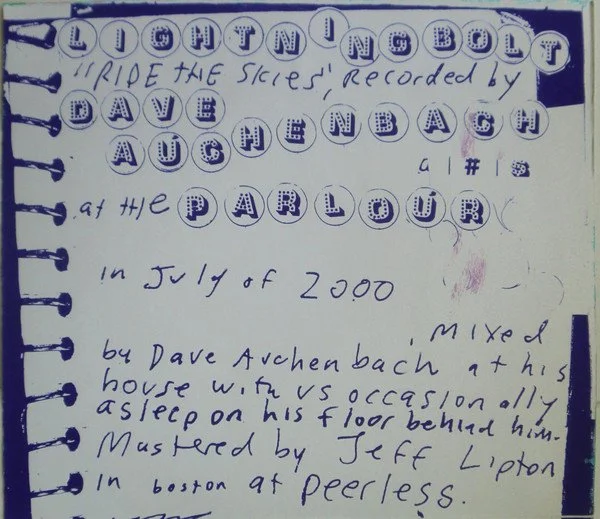 LIGHTNINGBOLT
"RIDE tHE SKies", Recorded by
DAVE
AUGHENBACH
a|#|s
at tHe PARLOUR
in July of 2000
. Mixed
by Dave Auchenbach at his
house with us occasionally
asleep on his floor behind him.
Mastered by Jeff Lipton
In boston at peerless.